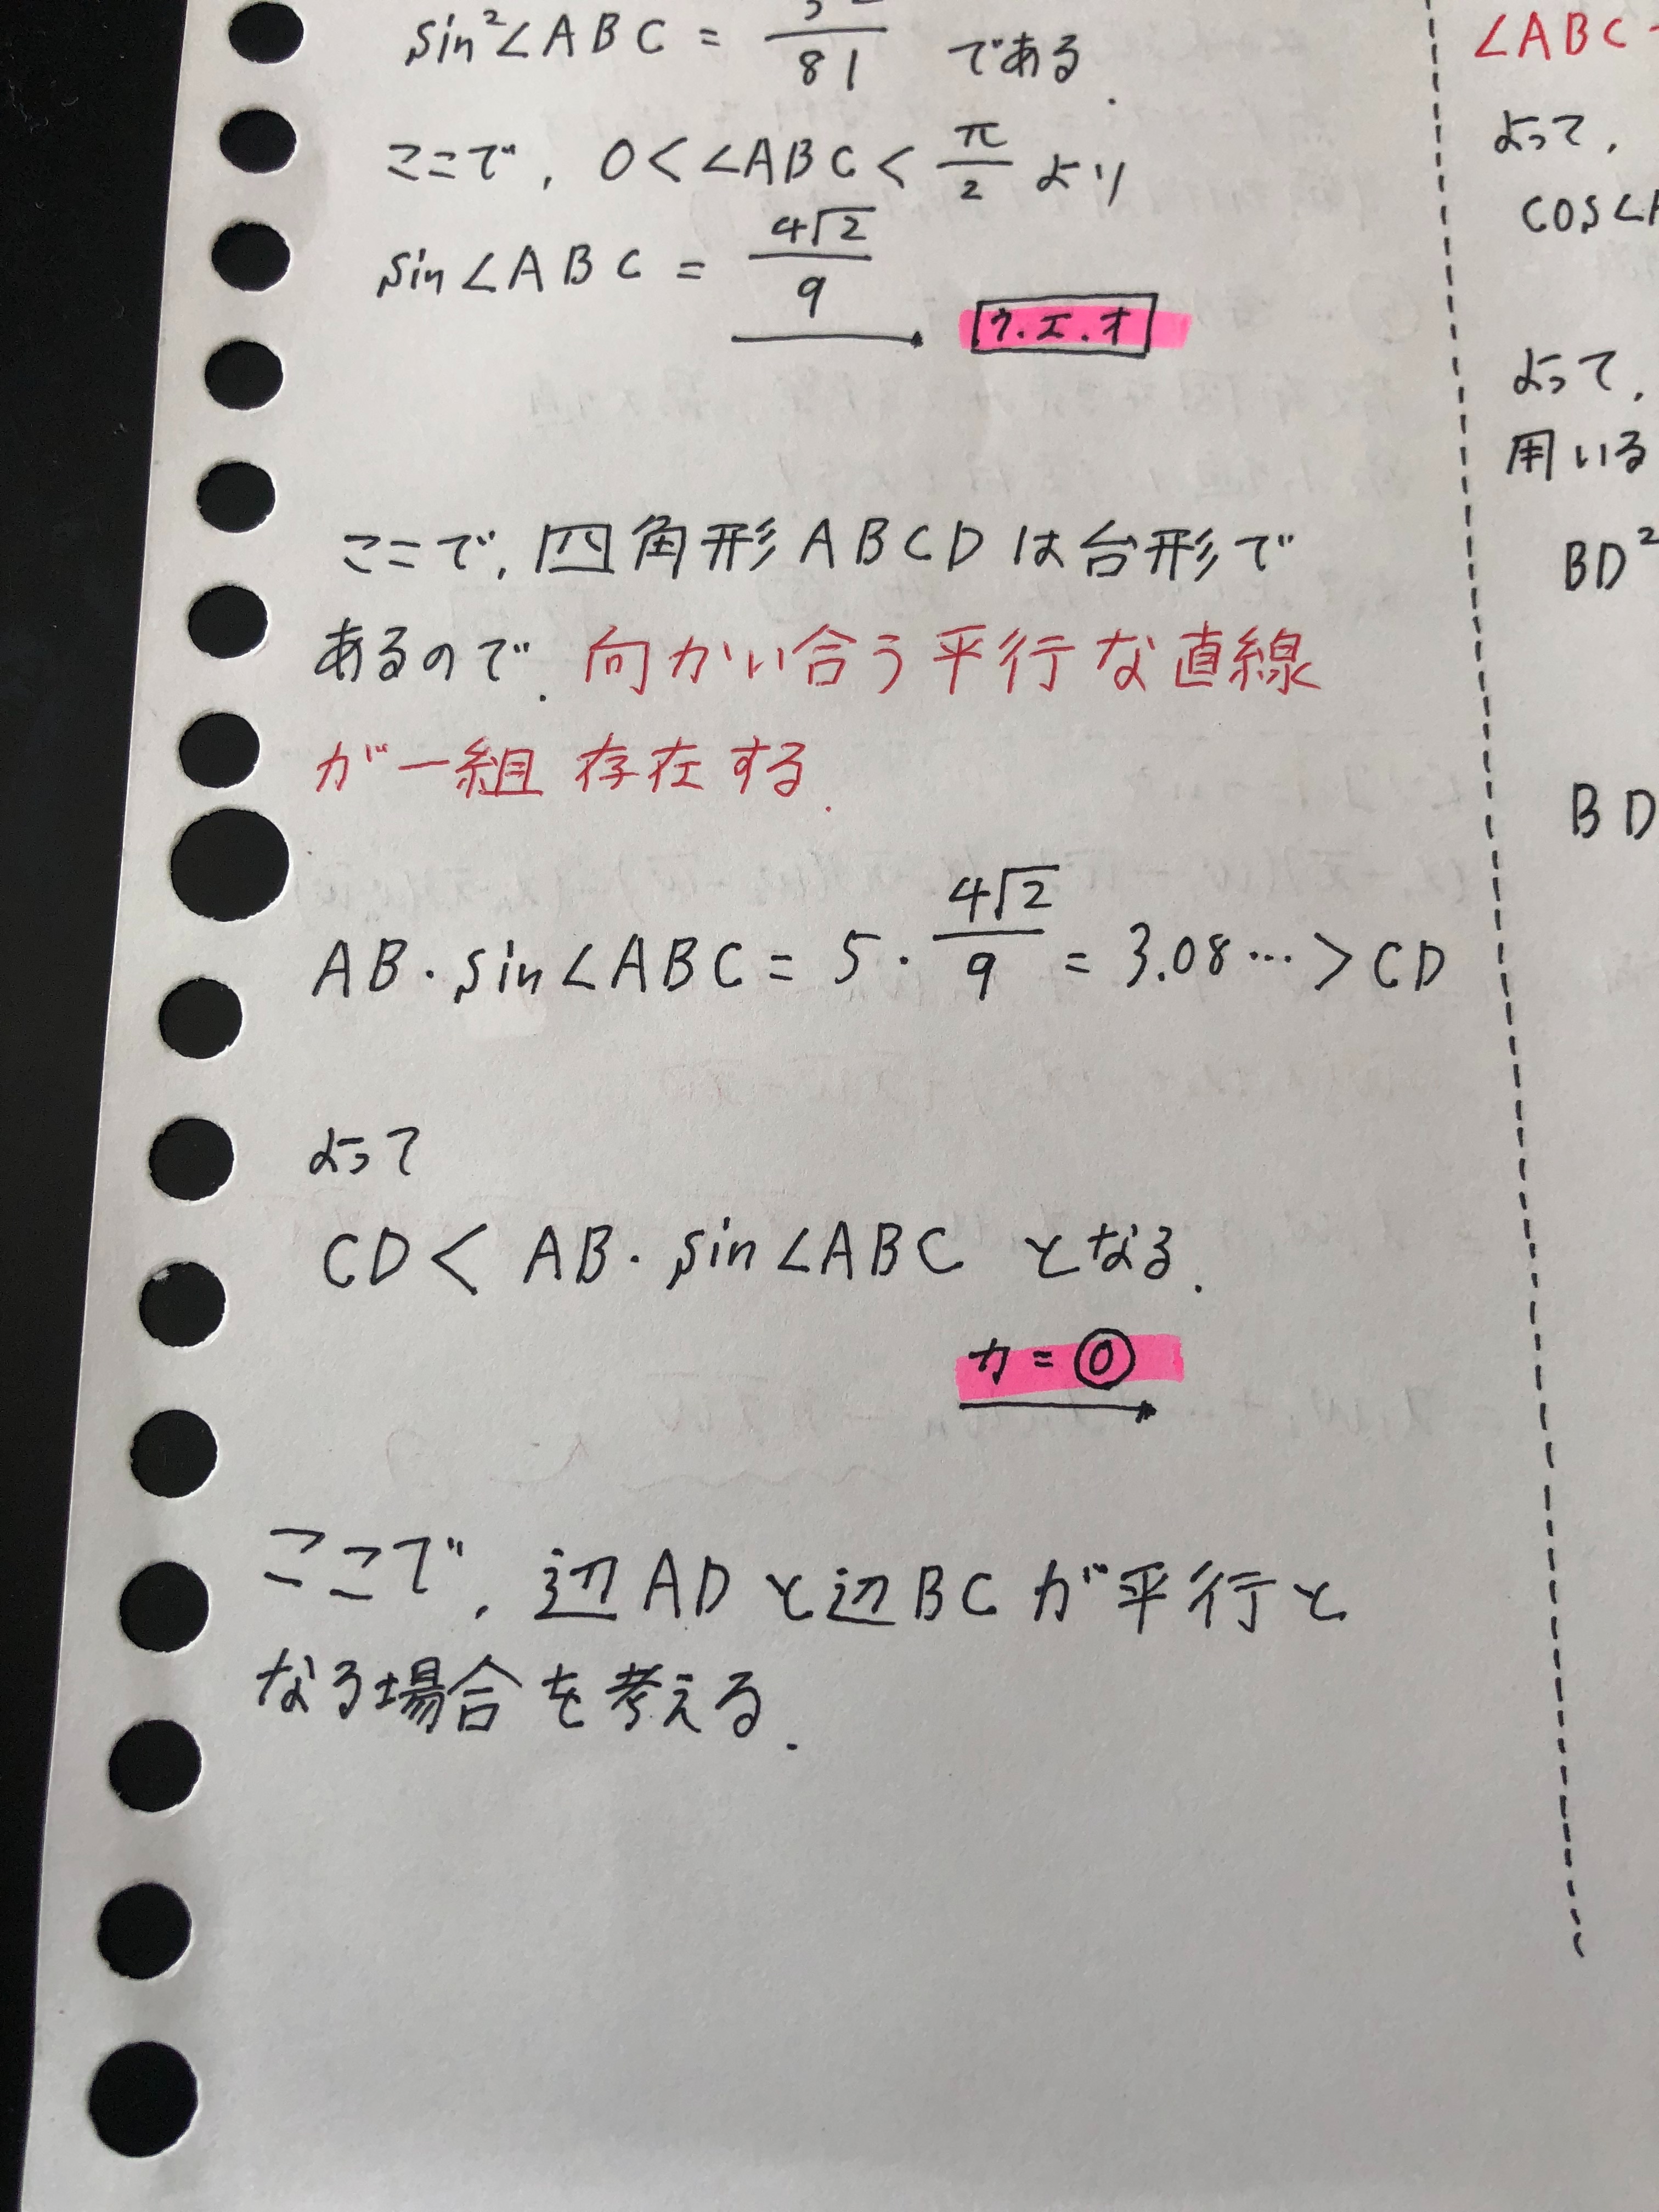 sin²∠ABC = 32/81 である.
ここで, 0 < ∠ABC < π/2 より
sin∠ABC = 4√2/9
ウ.エ.オ
ここで, 四角形ABCDは台形で
あるので, 向かい合う平行な直線
が一組存在する.
AB・sin∠ABC = 5・4√2/9 = 3.08… > CD
よって
CD < AB・sin∠ABC となる.
カ = ⓪
ここで, 辺ADと辺BCが平行と
なる場合を考える.
∠ABC
よって,
cos∠
よって,
用いる
BD²
BD